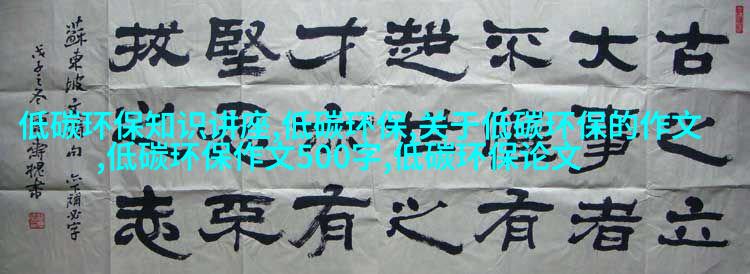 古之立
大事者
不惟有
超世之
才亦有
堅忍不
拔之志
蘇東坡文摘句 亦下漏必字
戊子之冬 書
低碳环保知识讲座,低碳环保,关于低碳环保的作文
,低碳环保作文500字,低碳环保论文